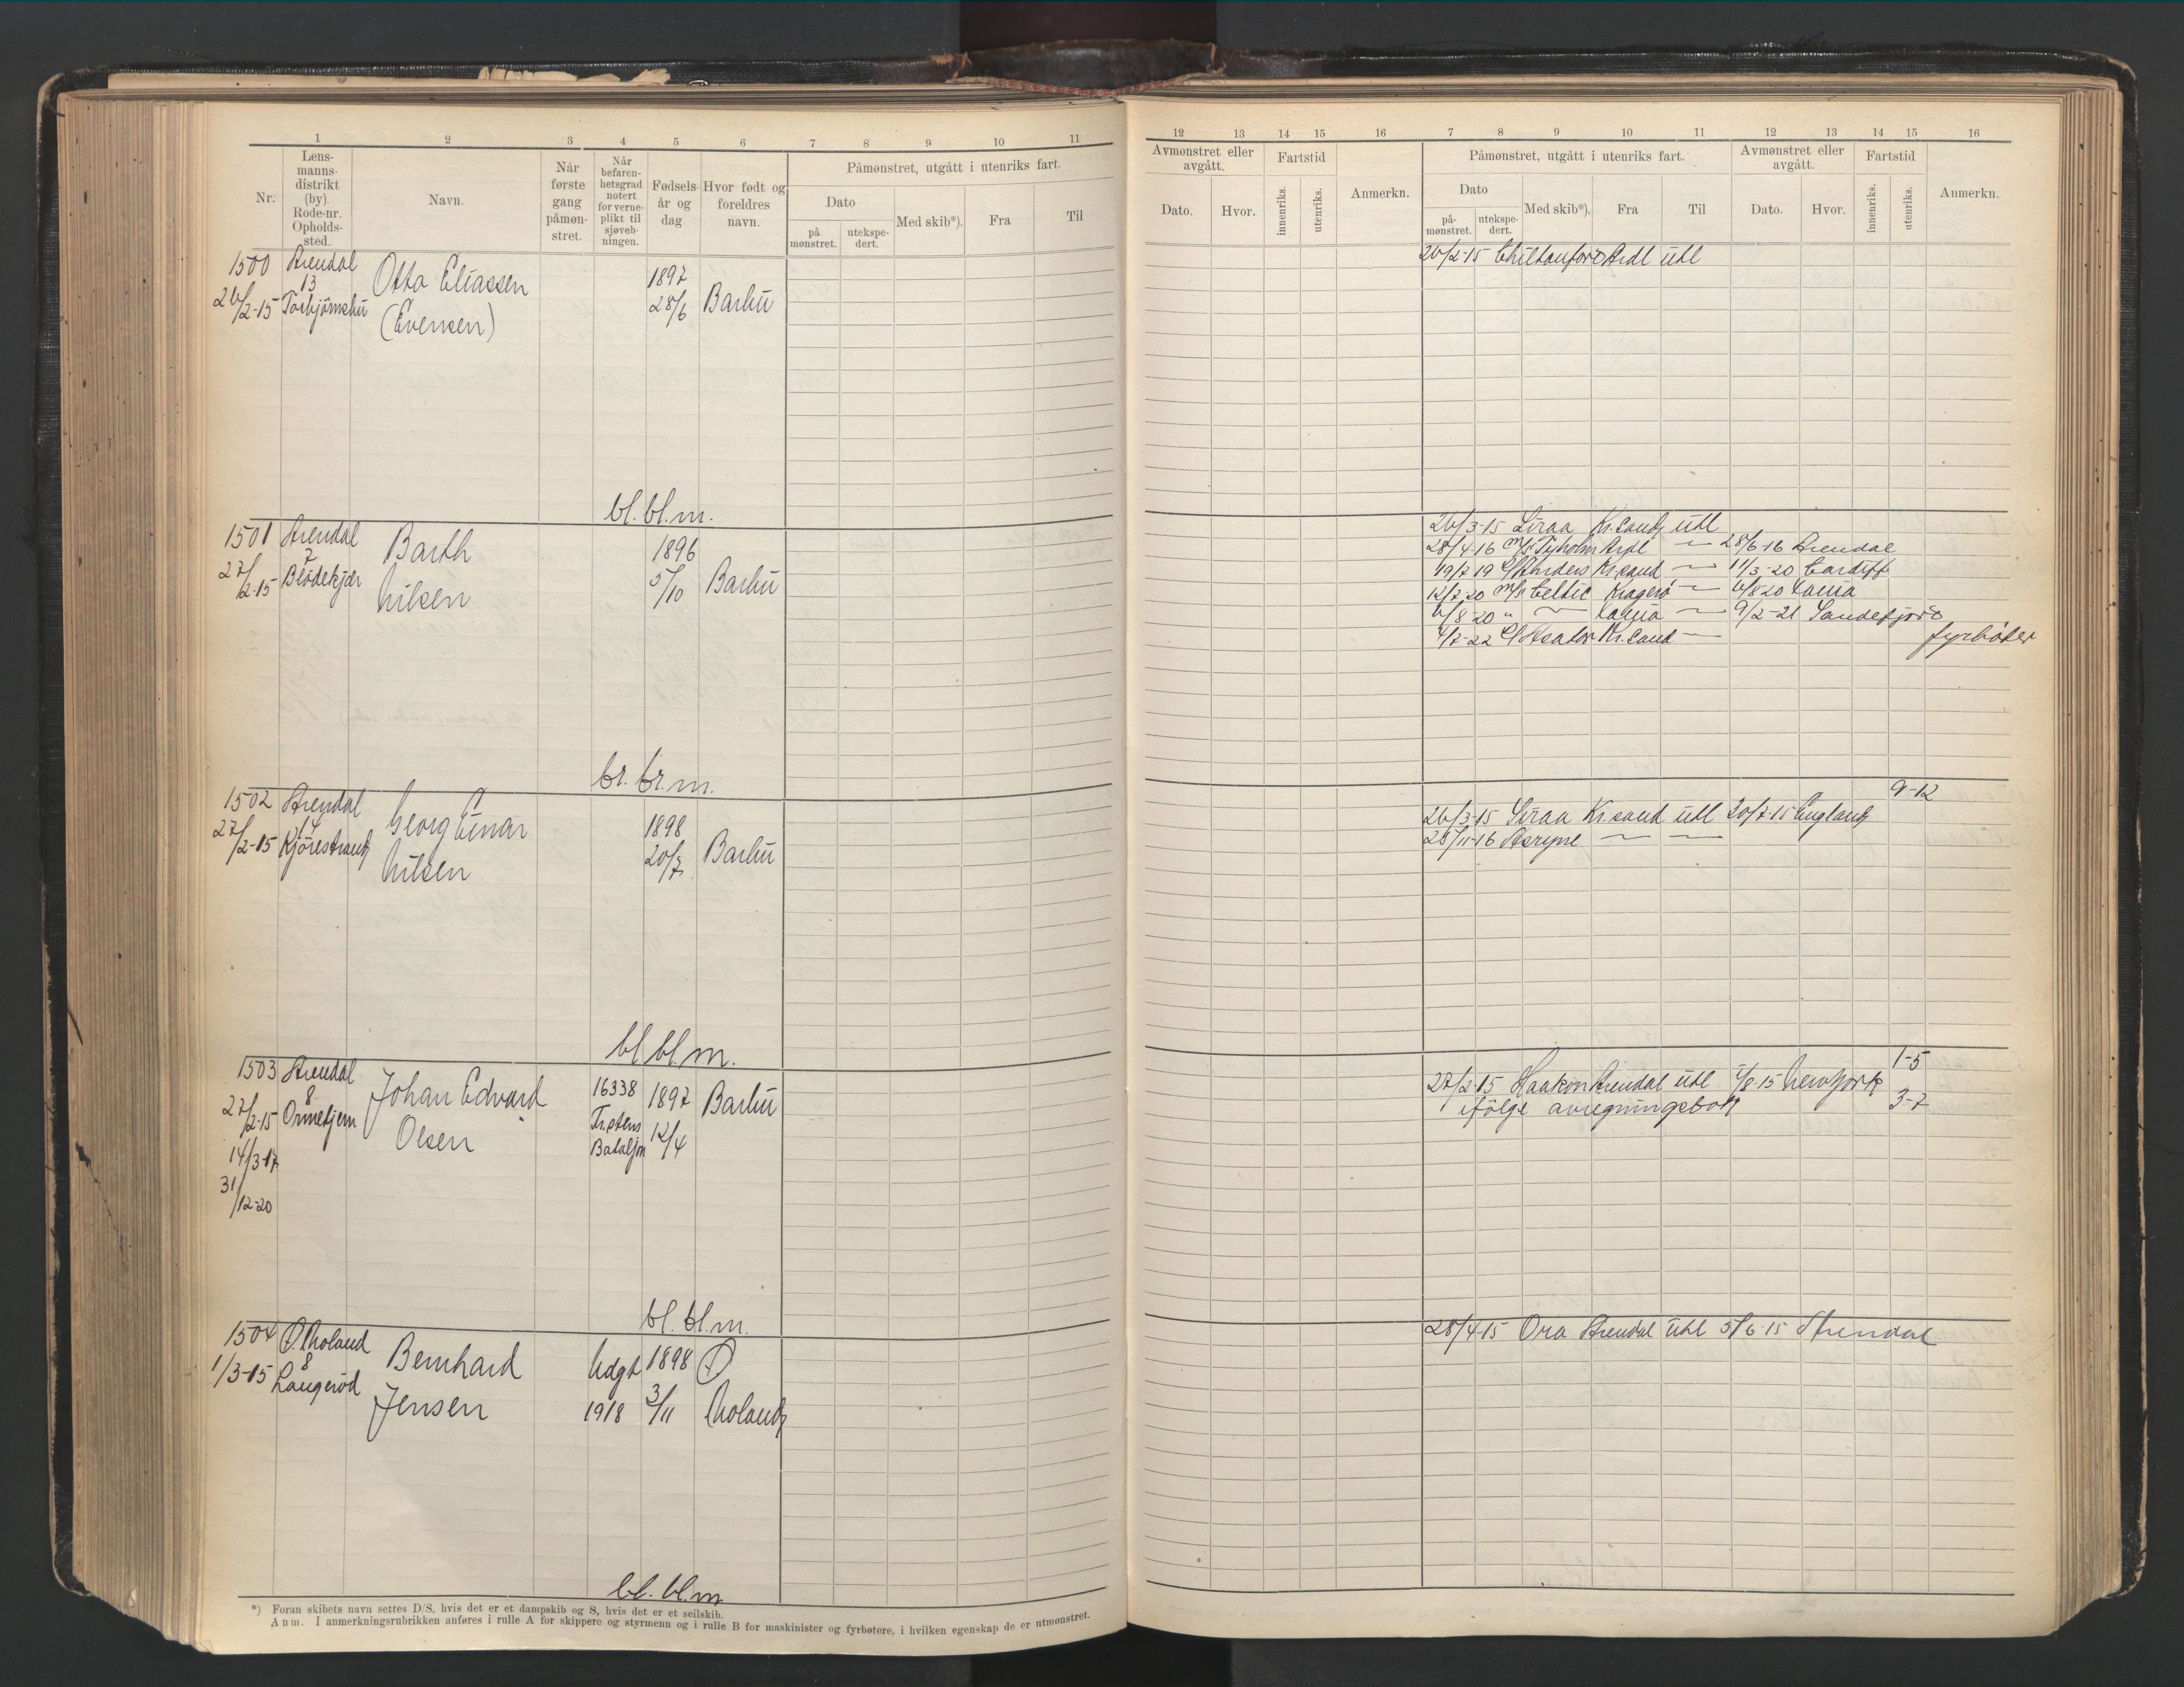 1 2 3 4 5 6 7 8 9 10 11
Nr.
Lens-
manns-
distrikt
(by).
Rode-nr.
Opholds-
sted.
Navn.
Når
første
gang
påmøn-
stret.
Når
befaren-
hetsgrad
notert
for verne-
plikt til
sjøveb-
ningen.
Fødsels-
år og
dag
Hvor født og
foreldres
navn.
Påmønstret, utgått i utenriks fart.
Dato
på
mønstret.
utekspe-
dert.
Med skib*).
Fra
Til
1500 Arendal
13
26/2-15 Torbjörnsbu
Otto Eliassen
(Evensen)
1897
28/6
Barbu
bl. bl. m.
1501 Arendal
7
27/2-15 Blödekjær
Barth
Nilsen
1896
5/10
Barbu
br. br. m.
1502 Arendal
14
27/2-15 Kjörestrand
Georg Einar
Nilsen
1898
20/7
Barbu
bl. bl. m.
1503 Arendal
8
27/2-15
14/3-17
31/12-20
Johan Edvard
Olsen
16338
Tr.stens
Bataljon
1897
12/4
Barbu
bl. bl. m.
1504 Ø. Moland
8
1/3-15 Longerød
Bernhard
Jensen
Udgt
1918
1898
3/11
Ø
Moland
bl. bl. m
*) Foran skibets navn settes D/S, hvis det er et dampskib og S, hvis det er et seilskib.
Anm. I anmerkningsrubrikken anføres i rulle A for skippere og styrmenn og i rulle B for maskinister og fyrbøtere, i hvilken egenskap de er utmønstret.
12 13 14 15 16 7 8 9 10 11 12 13 14 15 16
Avmønstret eller
avgått.
Dato.
Hvor.
Fartstid
innenriks.
utenriks.
Anmerkn.
Påmønstret, utgått i utenriks fart.
Dato
på-
mønstret.
utekspe-
dert.
Med skib*).
Fra
Til
Avmønstret eller
avgått.
Dato.
Hvor.
Fartstid
innenriks.
utenriks.
Anmerkn.
26/2-15 Chiltonford Ardl utl
26/3-15 Siraa Kr.sand utl
28/4-16 m/s Tyholm Ardl — 28/6-16 Arendal
19/7 19 Kr.sand — 11/3-20 Cardiff
12/7-20 m/s Celtic Kragerö — 6/8-20
6/8-20 " — — 9/2-21 Sandefjord
4/7-22 Kr.sand —
fyrböter
9-12
26/3-15 Siraa Kr.sand utl 20/7-15 England
28/11-16 — —
1-5
27/2-15 Haakon Arendal utl 7/8-15 NewYork
ifölge avregningsbok
3-7
28/4-15 Ora Arendal utl 5/6-15 Arendal